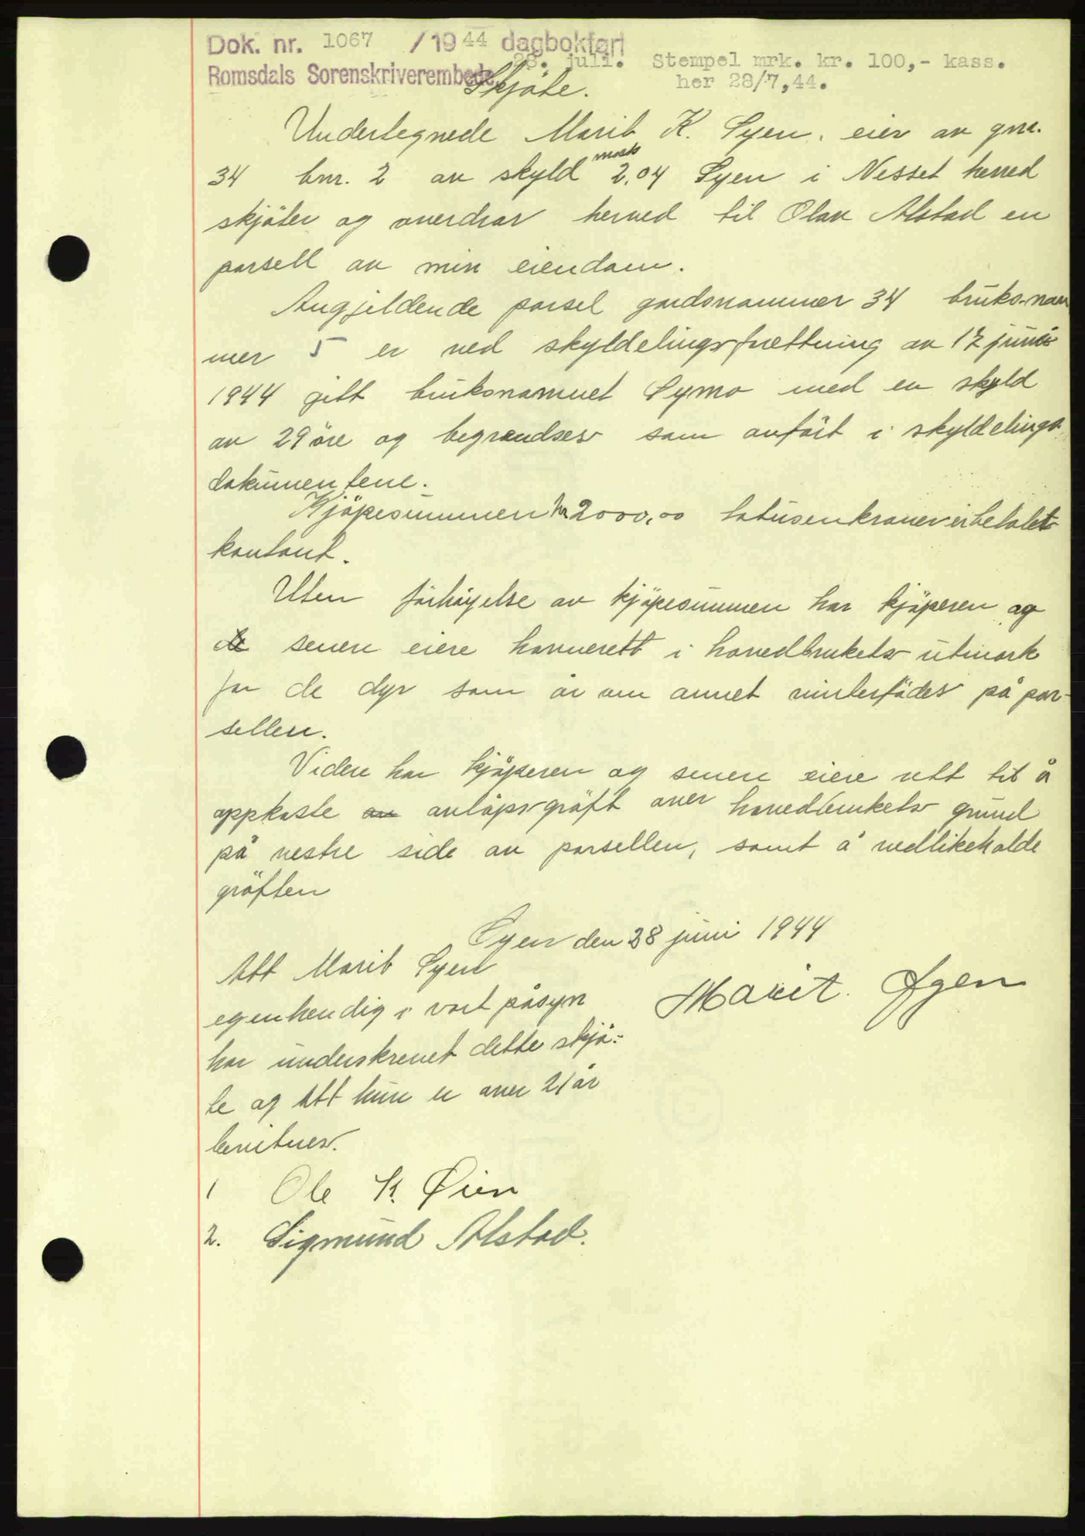 Dok. nr. 1067 / 1944 dagbokført
28. juli. Stempel mrk. kr. 100,- kass.
Romsdals Sorenskriverembede
her 28/7,44.
Skjöte.
Undertegnede Marit K. Øyen, eier av gnr.
34 bnr. 2 av skyld mark 2,04 Öyen i Nesset herred
skjöter og overdrar herved til Olav Alstad en
parsell av min eiendom.
Angjeldende parsel gardsnummer 34 bruksnum
mer 5 er ved skyldelingsforrettning av 12 juni
1944 gitt bruksnamnet Öymo med en skyld
av 29 öre og begrendses som anfört i skyldelings
dokumentene.
Kjöpesummen kr 2000,00 totusenkroner er betalt
kontant.
Uten förhöyelse av kjöpesummen har kjöperen og
senere eiere havnerett i hovedbrukets utmark
for de dyr som år om annet vinterfödes på par-
sellen.
Videre har kjöperen og senere eiere rett til å
oppkaste avlöpsgröft over hovedbrukets grund
på vestre side av parsellen, samt å vedlikeholde
gröften
Öyen den 28 juni 1944
Att Marit Öyen
Marit Øyen
egenhendig i vort påsyn
har underskrevet dette skjö-
te og att hun er over 21 år
bevitnes.
1 Ole K. Øien
2. Sigmund Alstad.